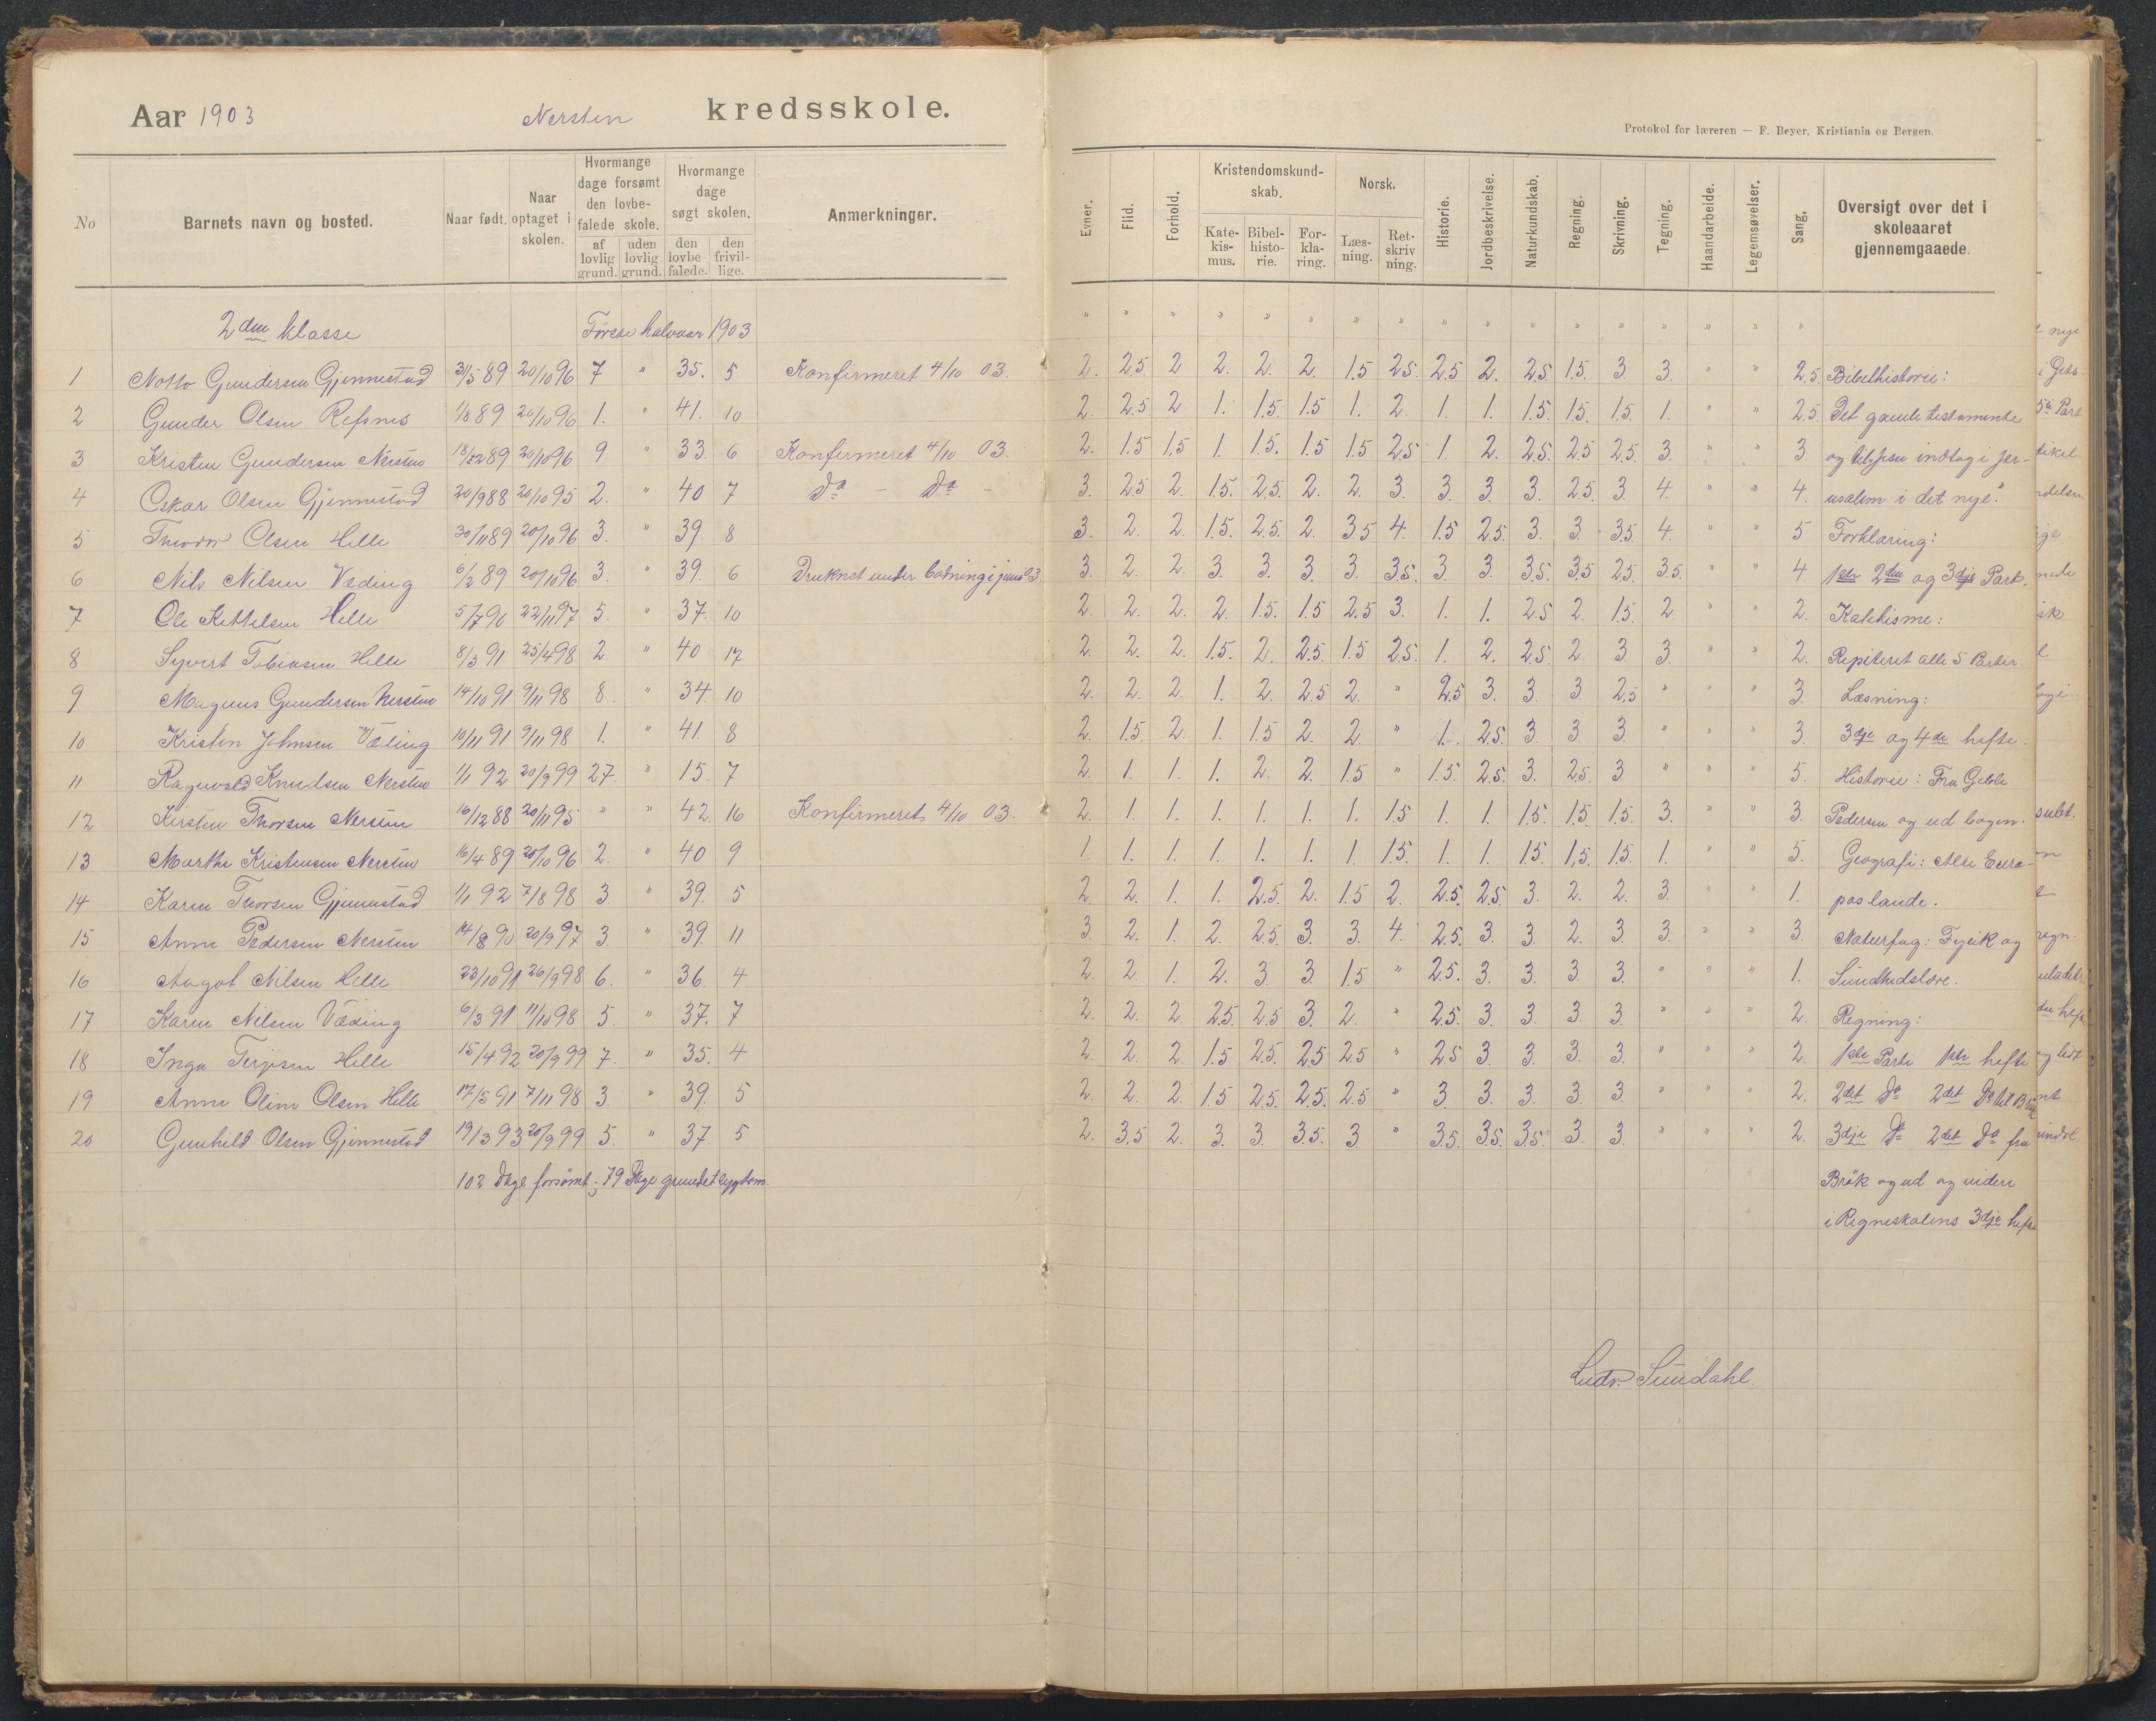 Aar 1903 Nersten kredsskole.
Protokol for læreren — F. Beyer, Kristiania og Bergen.
No Barnets navn og bosted. Naar født. Naar optaget i skolen. Hvormange dage forsømt den lovbefalede skole. af lovlig grund. uden lovlig grund. Hvormange dage søgt skolen. den lovbefalede. den frivillige. Anmerkninger. Evner. Flid. Forhold. Kristendomskundskab. Katekismus. Bibelhistorie. Forklaring. Norsk. Læsning. Retskrivning. Historie. Jordbeskrivelse. Naturkundskab. Regning. Skrivning. Tegning. Haandarbeide. Legemsøvelser. Sang. Oversigt over det i skoleaaret gjennemgaaede.
2den klasse Første halvaar 1903 " " " " " " " " " " " " " " " " "
1 Notto Gundersen Gjennestad 3/5 89 20/10 96 7 " 35. 5 Konfirmeret 4/10 03. 2. 2.5 2 2. 2. 2. 1.5 2.5. 2.5 2. 2.5. 1.5. 3 3. " " 2.5. Bibelhistorie:
2 Gunder Olsen Refsnes 1/8 89 20/10 96 1. " 41. 10 2. 2.5 2 1. 1.5. 1.5 1. 2. 1. 1. 1.5. 1.5. 1.5 1. " " 2.5 Det gamle testamente
3 Kristen Gundersen Nersten 18/12 89 20/10 96 9 " 33. 6 Konfirmeret 4/10 03. 2. 1.5 1.5 1. 1.5. 1.5 1.5 2.5 1. 2. 2.5. 2.5 2.5. 3. " " 3. og til Jesu indtog i Jer-
4 Oskar Olsen Gjennestad 20/9 88 20/10 95 2. " 40 7 Do - Do - 3. 2.5 2. 1.5. 2.5. 2. 2. 3. 3. 3. 3. 2.5. 3. 4. " " 4. usalem i det nye."
5 Theodor Olsen Helle 30/11 89 20/10 96 3. " 39. 8 3. 2. 2. 1.5. 2.5. 2. 3.5 4. 1.5 2.5. 3. 3. 3.5. 4. " " 5 Forklaring:
6 Nils Nilsen Væding 6/2 89 20/10 96 3. " 39. 6 Druknet under badning i juni 03 3. 2. 2. 3. 3. 3. 3. 3.5. 3. 3. 3.5. 3.5 2.5. 3.5. " " 4 1ste 2den og 3dje Part.
7 Ole Kettelsen Helle 5/7 90 22/11 97 5. " 37. 10 2. 2. 2. 2. 1.5. 1.5 2.5 3. 1. 1. 2.5 2. 1.5. 2 " " 2. Katekisme:
8 Syvert Tobiasen Helle 8/3 91 25/4 98 2. " 40 17 2. 2. 2. 1.5. 2. 2.5. 1.5 2.5. 1. 2. 2.5. 2. 3 3. " " 2. Repiteret alle 5 Parter.
9 Magnus Gundersen Nersten 14/10 91 9/11 98 8. " 34. 10 2. 2. 2. 1. 2. 2.5 2. " 2.5 3. 3. 3 2.5 " " " 3. Læsning:
10 Kristen Johnsen Væding 10/11 91 9/11 98 1. " 41. 8 2. 1.5. 2. 1. 1.5 2. 2. " 1. 2.5. 3. 3 3. " " " 3. 3dje og 4de hefte.
11 Ragnvald Knudsen Nersten 1/1 92 20/9 99 27. " 15. 7 2. 1. 1. 1. 2. 2. 1.5 " 1.5. 2.5. 3. 2.5. 3 " " " 5. Historie: Fra Geble
12 Kirsten Thorsen Nersten 16/12 88 20/11 95 " " 42. 16 Konfirmeret 4/10 03. 2. 1. 1. 1. 1. 1. 1. 1.5 1. 1. 1.5. 1.5. 1.5. 3. " " 3. Pedersen og ud bogen.
13 Marthe Kristensen Nersten 16/4 89 20/10 96 2. " 40 9 1. 1. 1. 1. 1. 1. 1. 1.5. 1. 1. 1.5. 1.5. 1.5. 1. " " 5. Geografi: Alle Euro-
14 Karen Thorsen Gjennestad 1/1 92 7/8 98 3. " 39. 5 2. 2. 1. 1. 2.5. 2. 1.5 2. 2.5. 2.5. 3. 2. 2. 3. 1. pas lande.
15 Anne Pedersen Nersten 14/8 90 20/9 97 3. " 39. 11 3. 2. 1. 2. 2.5. 3. 3. 4. 2.5. 3. 3. 2. 3. 3. " " 3. Naturfag: Fysik og
16 Aagot Nilsen Helle 23/10 91 26/9 98 6. " 36. 4 2. 2. 1. 2. 3. 3. 1.5 " 2.5. 3. 3. 3. 3. " " " 1. Sundhedslære.
17 Karen Nilsen Væding 6/3 91 11/10 98 5. " 37. 7 2. 2. 2. 2.5. 2.5 3. 2. " 2.5. 3. 3. 3. 3. " " " 2. Regning:
18 Inga Terjesen Helle 15/4 92 20/9 99 7. " 35. 4 2. 2. 2. 1.5 2.5. 2.5 2.5 " 2.5 3 3. 3. 3. " " " 2. 1ste Parti 1ste hefte
19 Anne Oline Olsen Helle 17/5 91 7/11 98 3. " 39. 5 2. 2. 2. 1.5 2.5. 2.5. 2.5 " 3 3. 3. 3 3. " " " 2. 2det Do 2det Do til Brøk
20 Gunhild Olsen Gjennestad 19/3 93 20/9 99 5. " 37. 5 2. 3.5 2. 3. 3. 3.5. 3 " 3.5. 3.5. 3.5. 3. 3. " " " 2. 3dje Do 2det Do fra
102 Dage forsømt; 79 Dage grundet sygdom. Brøk og ud og videre
i Regneskolens 3dje hefte
Ludv. Sundahl.